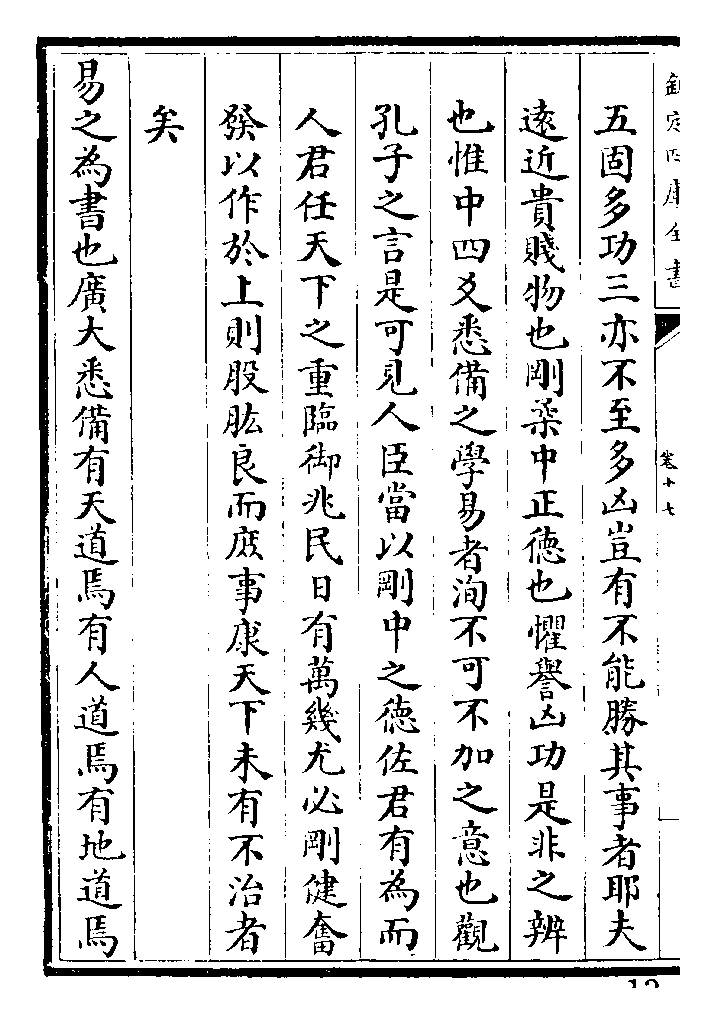 欽定四庫全書
卷十七
五固多功三亦不至多凶豈有不能勝其事者耶夫
遠近貴賤物也剛柔中正德也懼譽凶功是非之辨
也惟中四爻悉備之學易者洵不可不加之意也觀
孔子之言是可見人臣當以剛中之德佐君有為而
人君任天下之重臨御兆民日有萬幾尤必剛健奮
發以作於上則股肱良而庶事康天下未有不治者
矣
易之為書也廣大悉備有天道焉有人道焉有地道焉